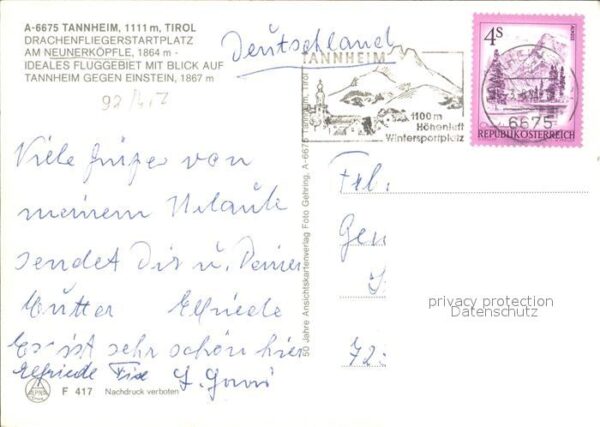 A-6675 TANNHEIM, 1111 m, TIROL
DRACHENFLIEGERSTARTPLATZ
AM NEUNERKÖPFLE, 1864 m -
IDEALES FLUGGEBIET MIT BLICK AUF
TANNHEIM GEGEN EINSTEIN, 1867 m
92/417
Deutschland
TANNHEIM
1100 m
Höhenluft
Wintersportplatz
4 S
6675
REPUBLIK ÖSTERREICH
Viele Grüße von
meinem Urlaub
sendet Dir u. Deiner
Mutter Elfriede
Es ist sehr schön hier
Elfriede
50 Jahre Ansichtskartenverlag Foto Gehring, A-6675 Tannheim, Tirol
Frl.
72
privacy protection
Datenschutz
F 417 Nachdruck verboten